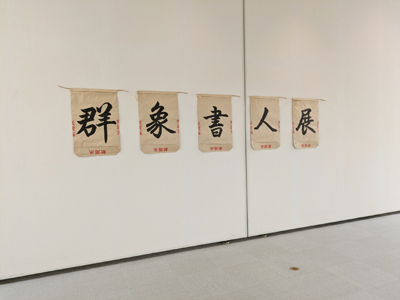 群象書人展